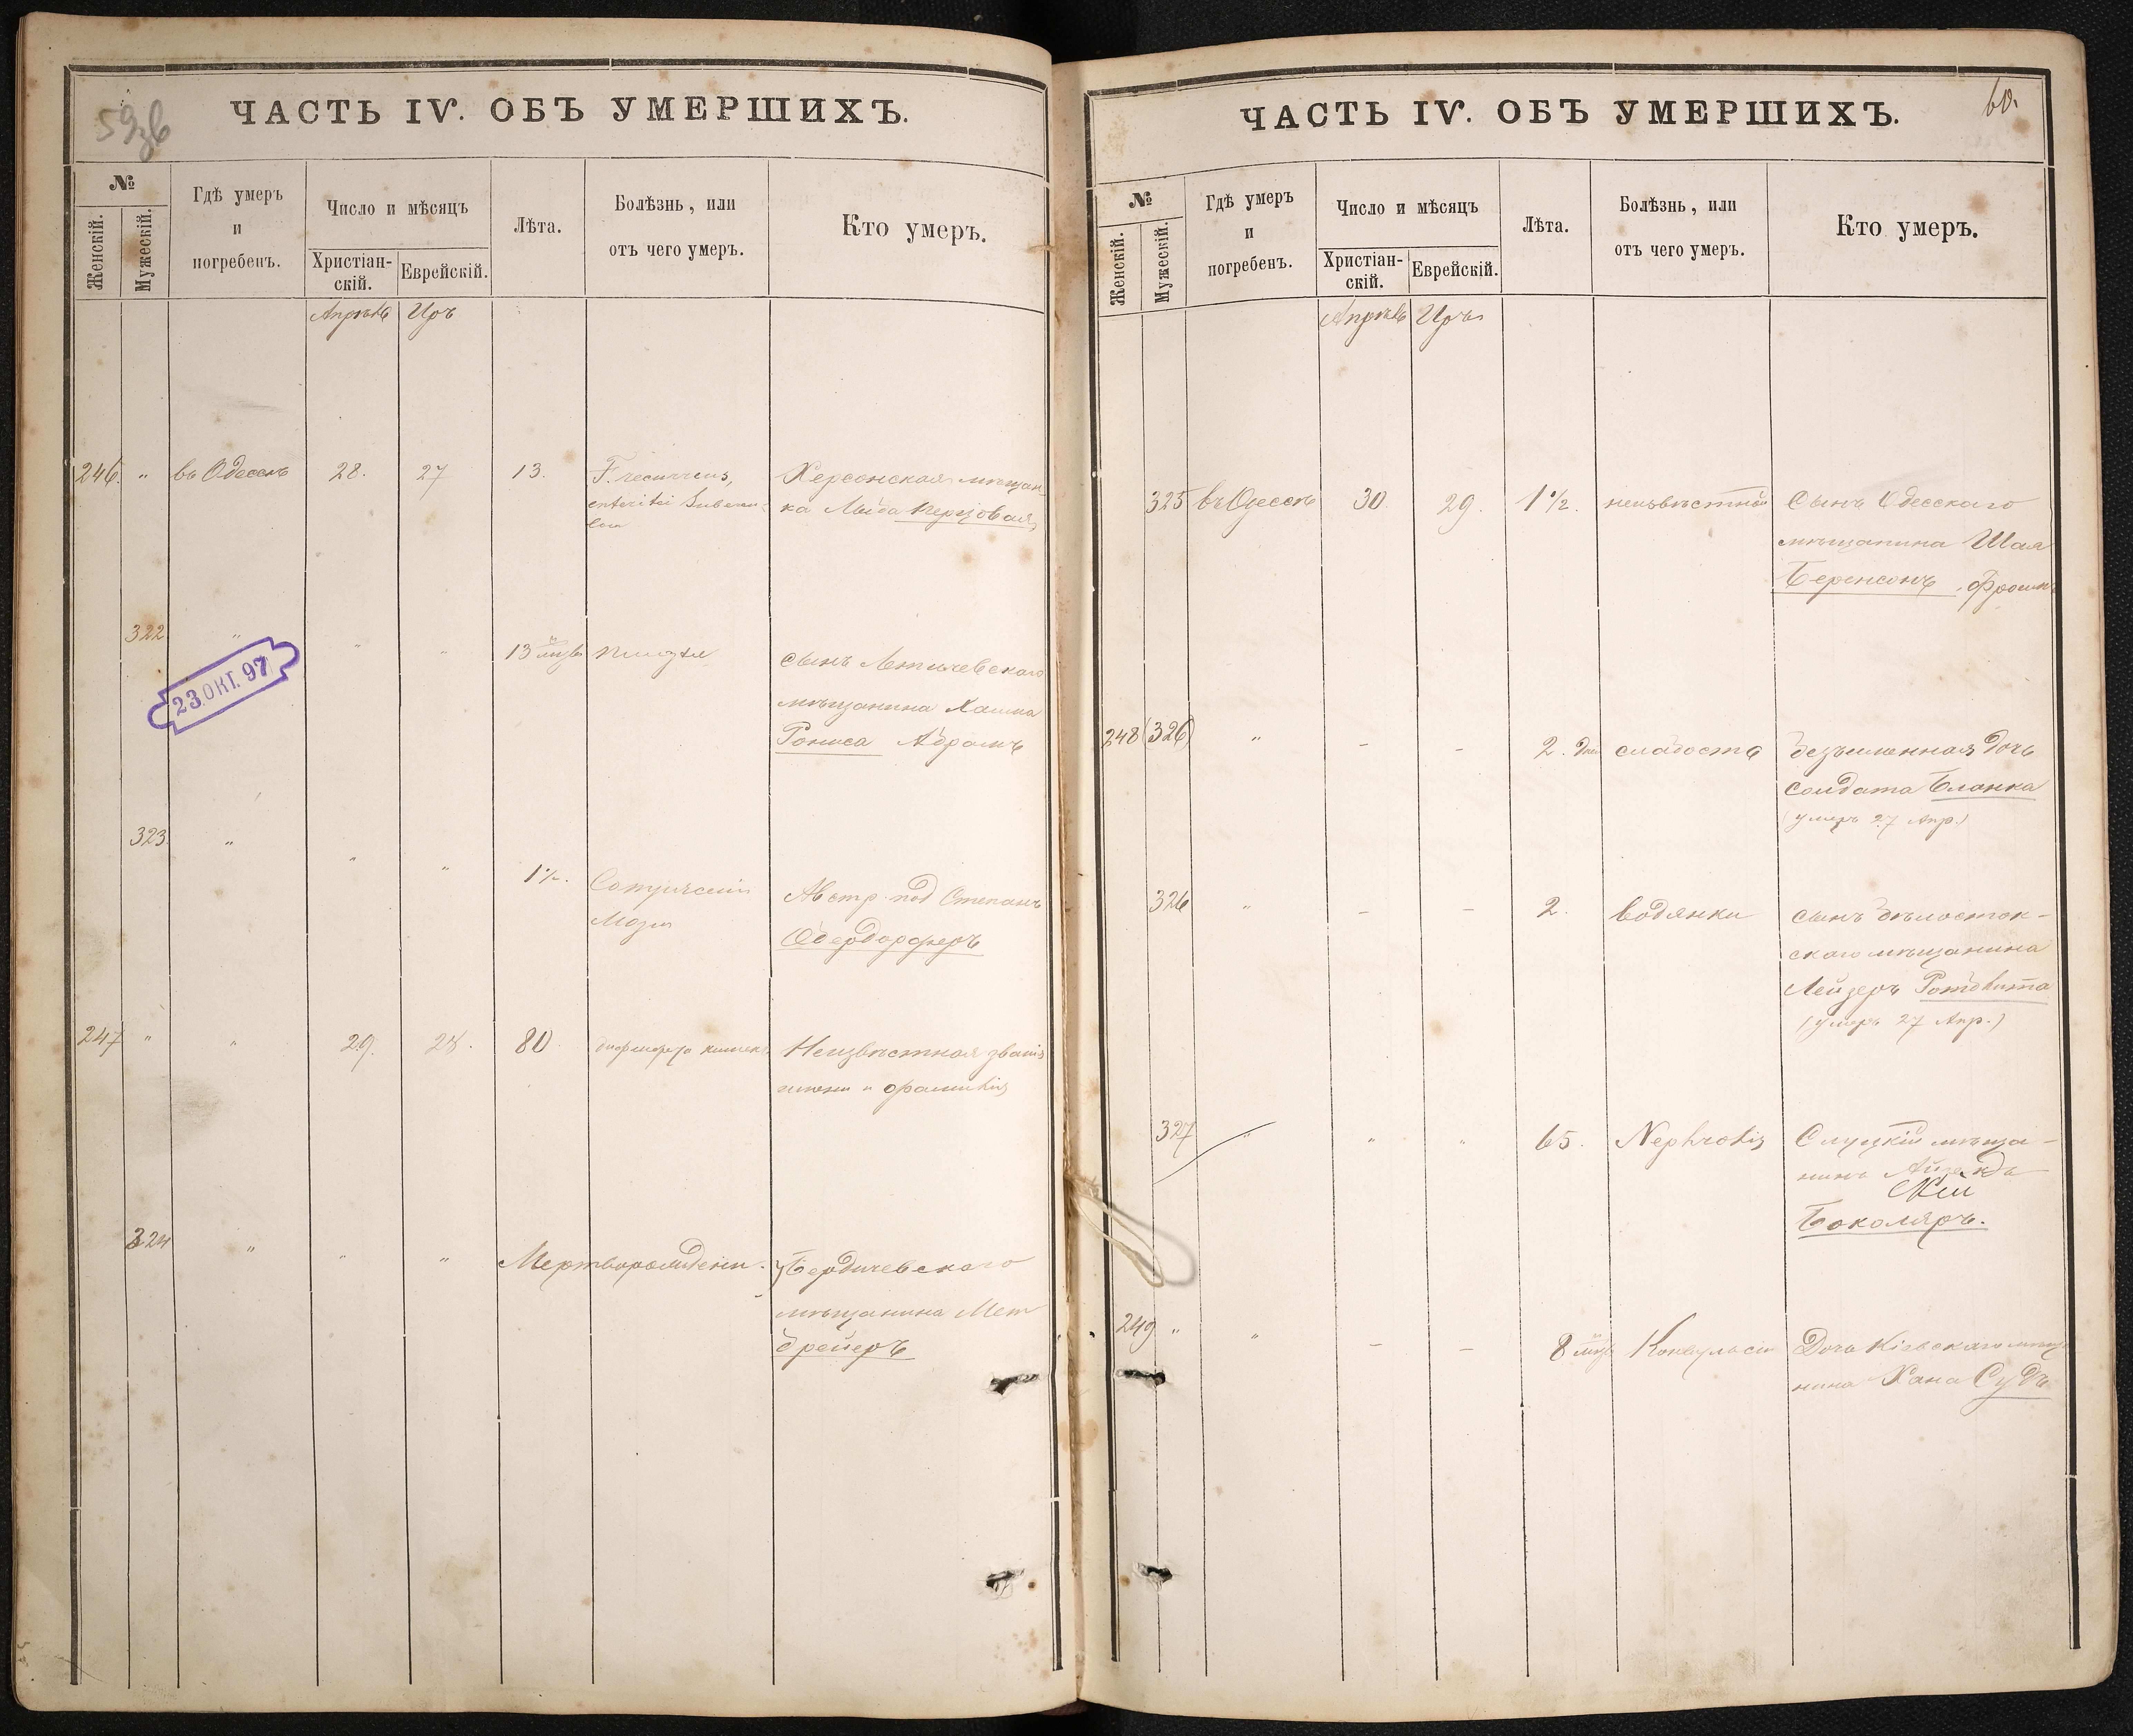 59зв
ЧАСТЬ IV. ОБЪ УМЕРШИХЪ.
№
Женскій.
Мужескій.
Гдѣ умеръ
и
погребенъ.
Число и мѣсяцъ
Христіан-
скій.
Еврейскій.
Лѣта.
Болѣзнь, или
отъ чего умеръ.
Кто умеръ.
Апрѣль Иръ
246. " въ Одессѣ 28. 27 13. F. recurrens,
Херсонская мѣщан-
ка
Перцовая
322 " " " 13 мцв
сынъ Летичевскаго
мѣщанина Хаима
Рониса Абрамъ
23.ОКТ.97
323. " " " 1½. Сотрясенія
Мозга
Австр. под Степанъ
Обердорферъ
247 " " 29. 28. 80
Неизвѣстная званія
имени и фамиліи
324 " " " Мерторожденн.
у Бердичевскаго
мѣщанина
брейеръ
60.
ЧАСТЬ IV. ОБЪ УМЕРШИХЪ.
№
Женскій.
Мужескій.
Гдѣ умеръ
и
погребенъ.
Число и мѣсяцъ
Христіан-
скій.
Еврейскій.
Лѣта.
Болѣзнь, или
отъ чего умеръ.
Кто умеръ.
Апрѣль Иръ
325 въ Одессѣ 30. 29. 1½. неизвѣстной
Сынъ Одесскаго
мѣщанина Шая
Беренсонъ, Фроимъ
248 (326) " - - 2. дня слабость
безъименная дочь
солдата Бланка
(умеръ 27 Апр.)
326 " - - 2. водянки
сынъ Бѣлосток-
скаго мѣщанина
Лейзеръ
(умеръ 27 Апр.)
327 " " " 65. Nephrotis
Слуцкій мѣща-
нинъ
скій
Боколяръ.
249 " " - - 8 мцв Конвульсіи
Дочь Кіевскаго мѣща
нина Хана Судъ